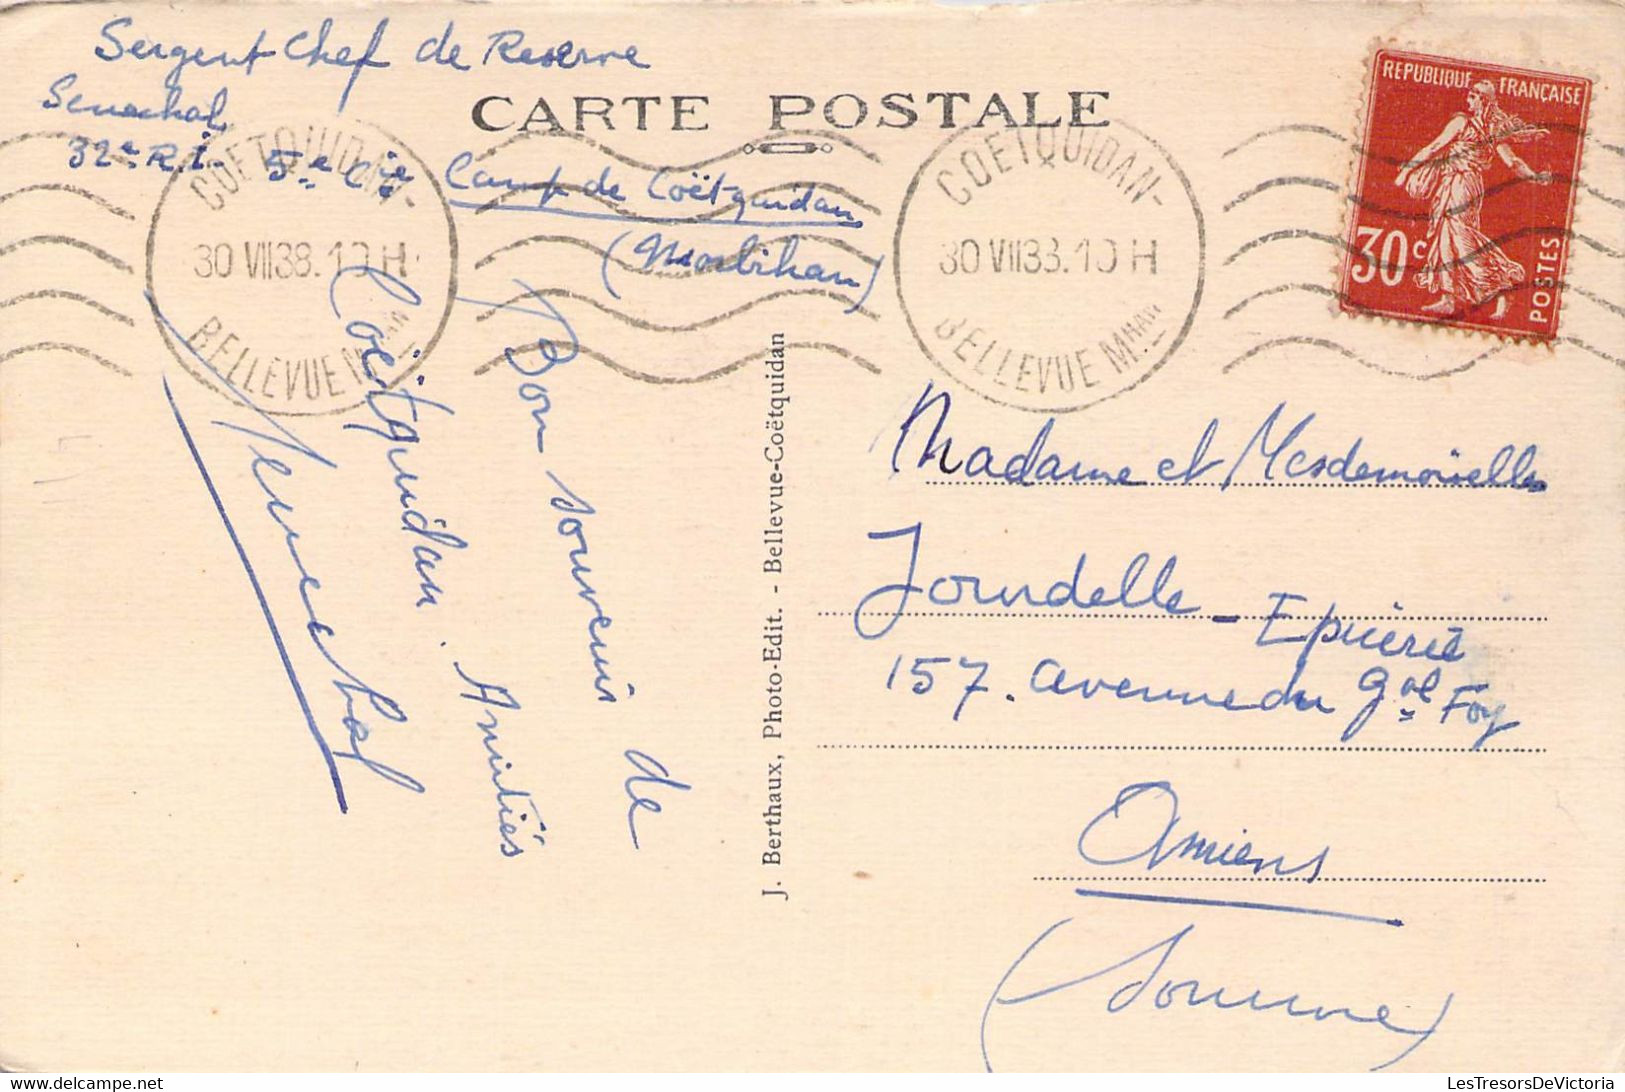 Sergent Chef de Reserve
Senechal
32e R.I. 5e Cie Camp de Coëtquidan
(Morbihan)
CARTE POSTALE
COËTQUIDAN-
30 VII 38. 10 H
BELLEVUE MHAN
COËTQUIDAN-
30 VII 38. 10 H
BELLEVUE MHAN
REPUBLIQUE FRANÇAISE
30 c
POSTES
Bon souvenir de
Coëtquidan. Amitiés
Senechal
J. Berthaux, Photo-Edit. - Bellevue-Coëtquidan
Madame et Mesdemoiselles
Jourdelle - Epicerie
157. avenue du Gal Foy
Amiens
(Somme)
LesTresorsDeVictoria